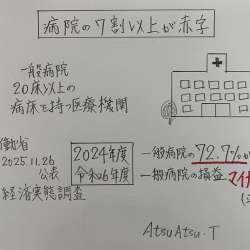 病院の7割以上が赤字
一般病院
20床以上の
病床を持つ医療機関
働省
2025.11.26
公表
経済実態調査
2024年度
令和6年度
一般病院の72.7%が
一般病院の損益 マイナ
AtsuAtsu.T